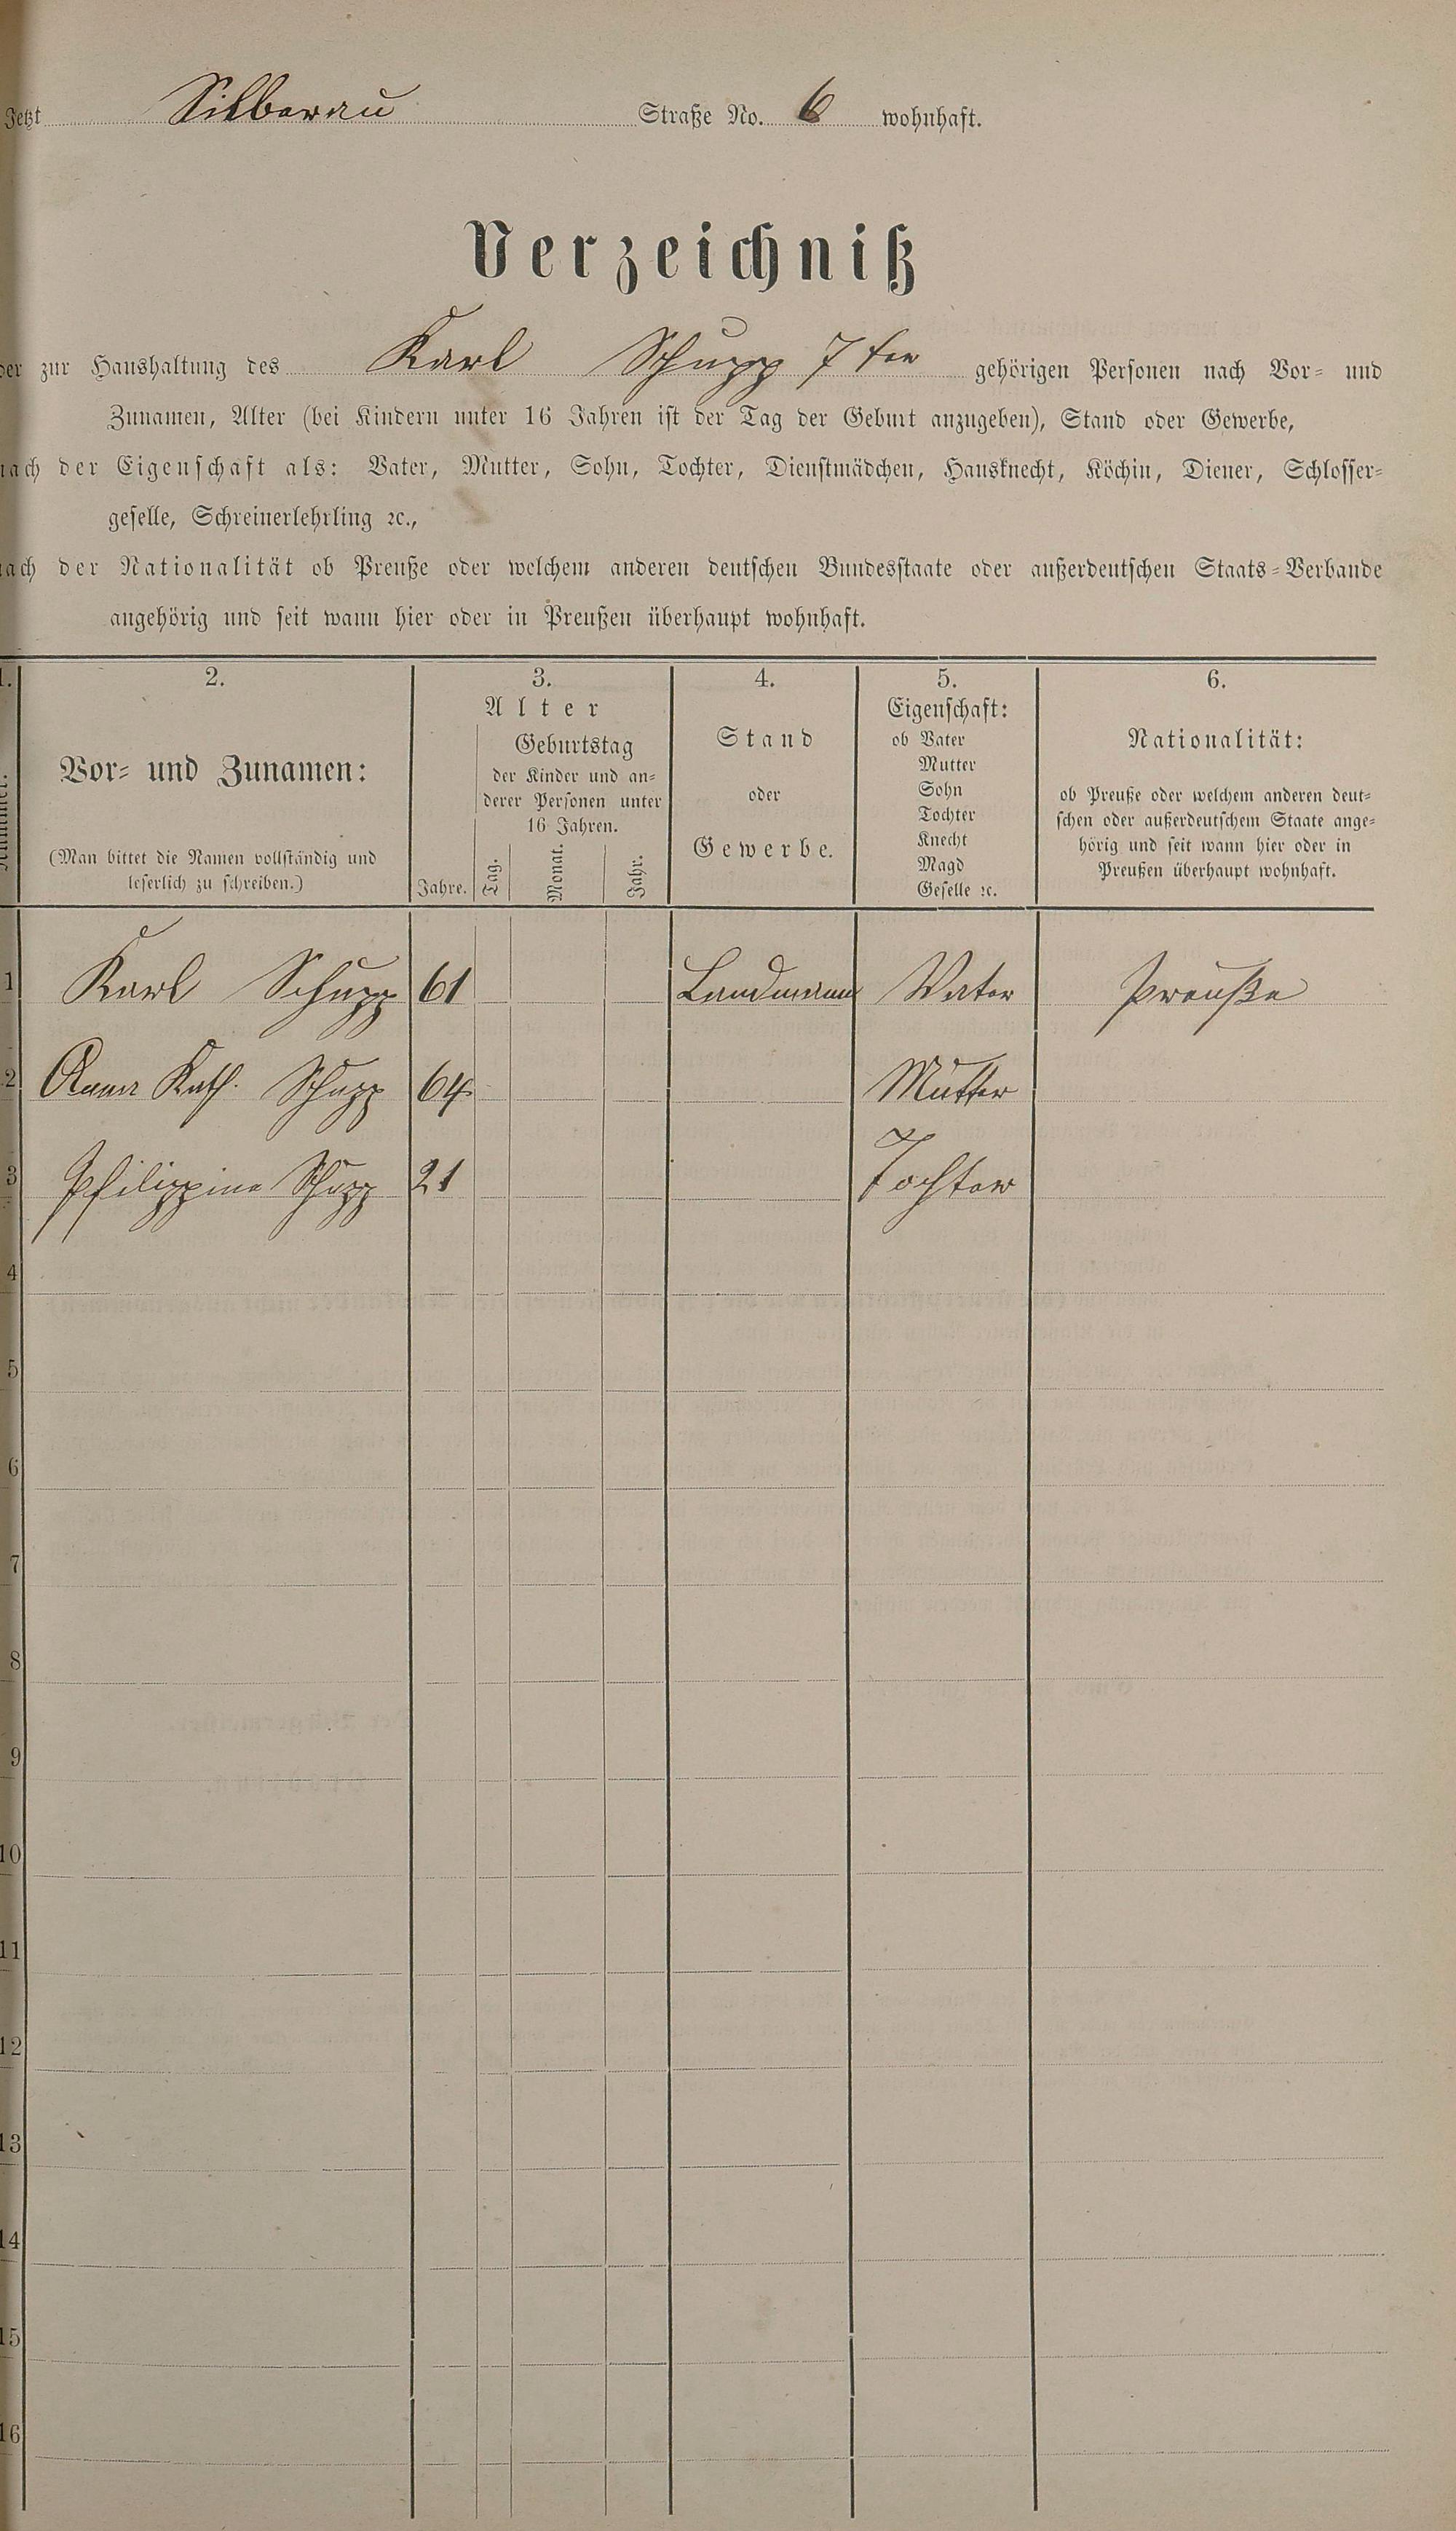 Jetzt Silberau Straße No. 6 wohnhaft.
Verzeichniß
der zur Haushaltung des Karl Schupp 7ter gehörigen Personen nach Vor- und
Zunamen, Alter (bei Kindern unter 16 Jahren ist der Tag der Geburt anzugeben), Stand oder Gewerbe,
nach der Eigenschaft als: Vater, Mutter, Sohn, Tochter, Dienstmädchen, Hausknecht, Köchin, Diener, Schlosser-
geselle, Schreinerlehrling ꝛc.,
nach der Nationalität ob Preuße oder welchem anderen deutschen Bundesstaate oder außerdeutschen Staats-Verbande
angehörig und seit wann hier oder in Preußen überhaupt wohnhaft.
1. 2. 3. 4. 5. 6.
Nummer.
Vor- und Zunamen:
(Man bittet die Namen vollständig und
leserlich zu schreiben.)
Alter
Jahre.
Geburtstag
der Kinder und an-
derer Personen unter
16 Jahren.
Tag. Monat. Jahr.
Stand
oder
Gewerbe.
Eigenschaft:
ob Vater
Mutter
Sohn
Tochter
Knecht
Magd
Geselle ꝛc.
Nationalität:
ob Preuße oder welchem anderen deut-
schen oder außerdeutschem Staate ange-
hörig und seit wann hier oder in
Preußen überhaupt wohnhaft.
1 Karl Schupp 61 Landmann Vater Preuße
2 Anna Kath. Schupp 64 Mutter
3 Philippine Schupp 21 Tochter
4
5
6
7
8
9
10
11
12
13
14
15
16